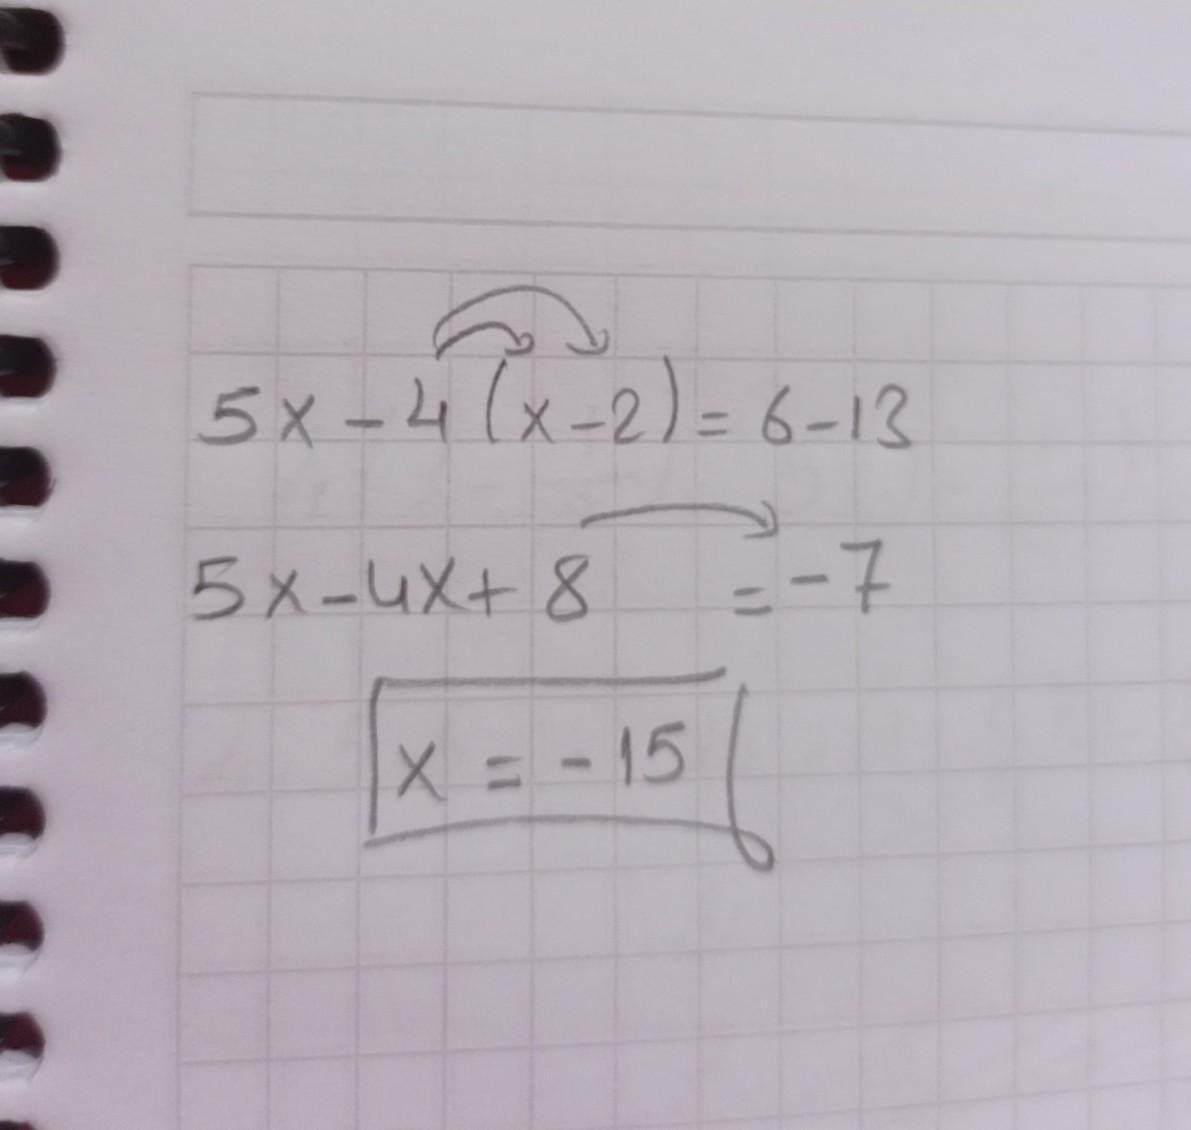 5x - 4 (x - 2) = 6 - 13
5x - 4x + 8 = - 7
x = - 15